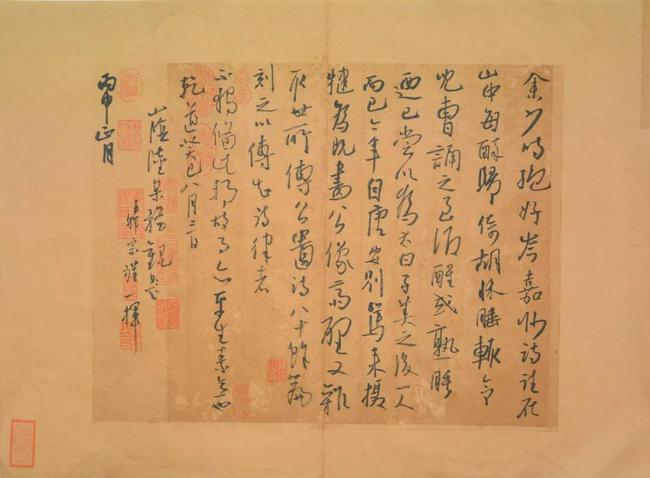 余少時絕好岑嘉州詩往在
山中每醉歸倚胡床睡輒令
兒曹誦之至酒醒或熟睡
迺已嘗以為太白子美之後一人
而已今年自唐安別駕來攝
犍為既畫公像齋壁又雜
取世所傳公遺詩八十餘篇
刻之以傳知詩律者
不獨備此邦故事亦平生素意也
乾道癸巳八月三日
山陰陸某務觀題
宗 一揮
丙申正月